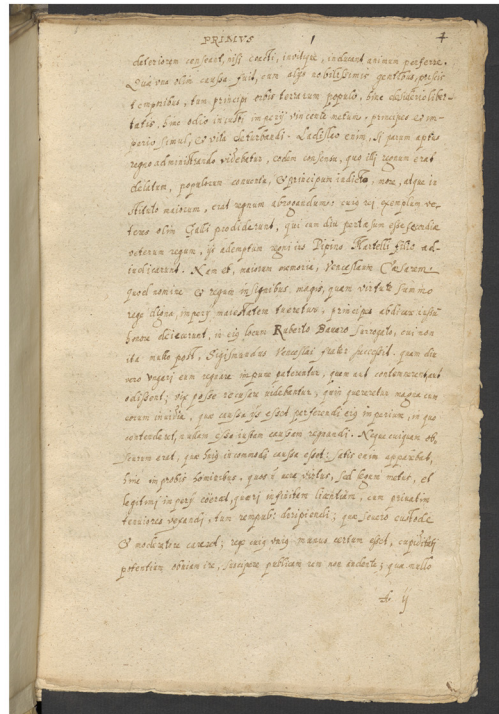 PRIMVS 4
deteriorem censeant, nisi coacti, inuitique, inducant animum perferre.
Quae una olim caussa fuit, cum alijs nobilissimis gentibus, priscis
temporibus, tum principi orbis terrarum populo, hinc desiderio liber-
tatis, hinc odio iniusti imperij vincente metum, principes et im-
perio simul, et vita deturbandi. Ladislao enim, si parum aptus
regno administrando videbatur, eodem consensu, quo illj regnum erat
delatum, populorum conuentu, et principum indicto, more, atque in
stituto maiorum, erat regnum abrogandum: cuius rej exemplum ve-
teres olim Galli prodiderunt, qui cum diu pertaesum esset
suorum regum, ijs ademptum regni ius Pipino Martelli filio ad-
iudicarunt. Nam et, maiorum memoria, Venceslaum Caesarem,
quod nomine et regum insignibus magis, quam virtute summo
rege digna, imperij maiestatem tueretur, principes abdicare
honore deiecerunt, in eius locum Ruberto Bauaro surrogato, cui non
ita multo post, Sigismundus Venceslai frater successit. quem diu
vero Vngarj eum regnare impune paterentur, quem uel contemnerent, uel
odissent; vix posse recusare uidebantur, quin quereretur magna cum
eorum inuidia, quae caussa ijs esset perferendi eius imperium, in quo
contenderet, nullam esse iustam caussam regnandi. Neque cuiquam ob,
scurum erat, quae huius incommodi caussa esset: satis enim apparebat,
hinc improbis hominibus, quos non uera virtus, sed legum metus, et
legitimj imperij coercet, quaerj infinitam licentiam, cum priuatim
tenuiores vexandj, tum rempub: diripiendi; quae seuero custode
et moderatore careret; rege cuius unius munus certum esset, cupiditatj
potentium obuiam ire, suscipere publicam rem non audente; qua nullo
A ij